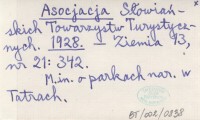 Asocjacja Słowiań-
skich Towarzystw Turystycz-
nych. 1928. – Ziemia 13,
nr 21: 342.
M.in. o parkach nar. w
Tatrach.
BT/002/0838